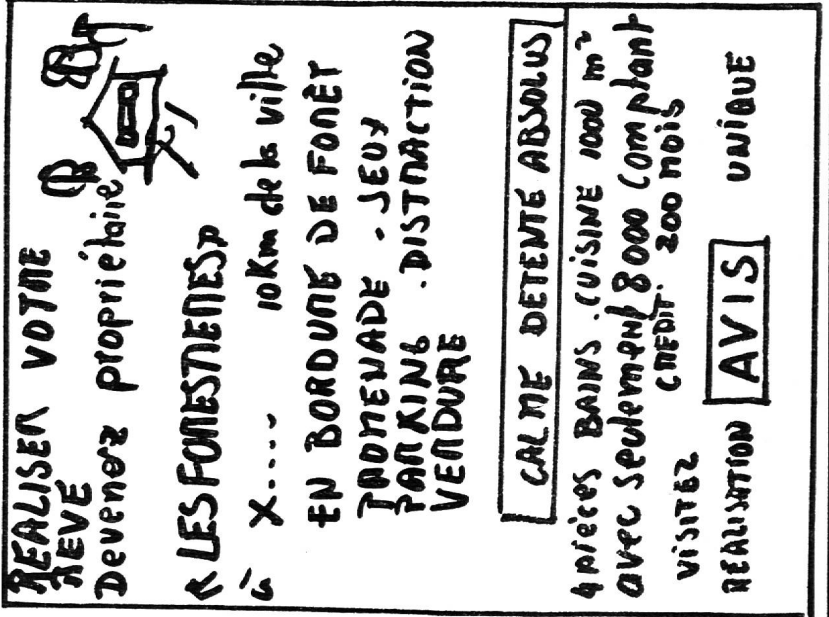 REALISER VOTRE
REVE
Devenez propriétaire
« LES FORESTIERES »
à X.... 10 Km de la ville
EN BORDURE DE FORÊT
PROMENADE - JEUX
PARKING . DISTRACTION
VERDURE
CALME DETENTE ABSOLUS
4 pièces BAINS . CUISINE 1000 m²
avec seulement 8000 comptant
CREDIT. 200 mois
VISITEZ
REALISATION AVIS UNIQUE